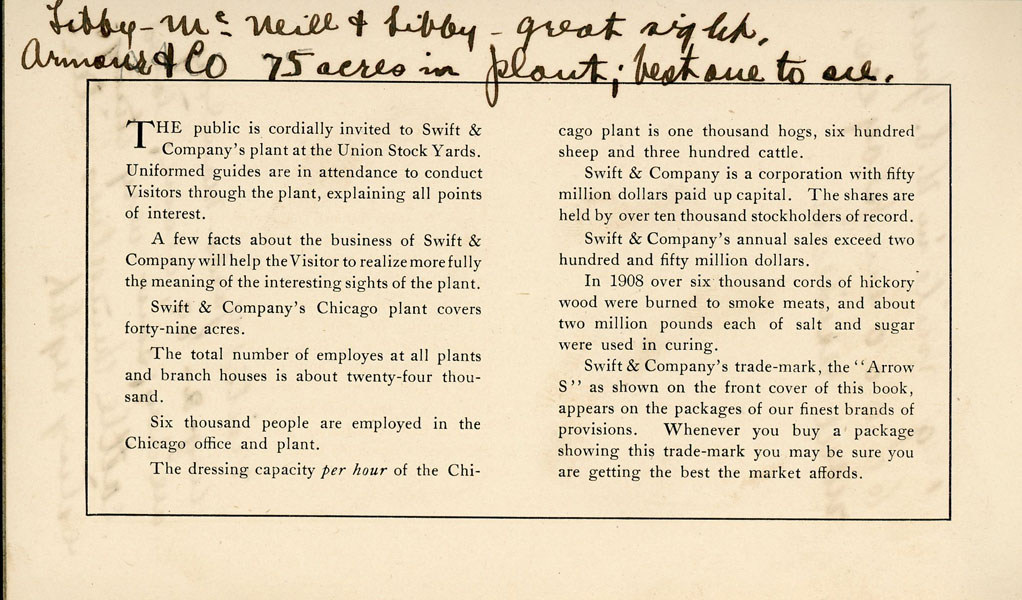 Libby - Mc Neill & Libby - great sight.
Armour & Co 75 acres in plant; best one to see.
THE public is cordially invited to Swift &
Company's plant at the Union Stock Yards.
Uniformed guides are in attendance to conduct
Visitors through the plant, explaining all points
of interest.
A few facts about the business of Swift &
Company will help the Visitor to realize more fully
the meaning of the interesting sights of the plant.
Swift & Company's Chicago plant covers
forty-nine acres.
The total number of employes at all plants
and branch houses is about twenty-four thou-
sand.
Six thousand people are employed in the
Chicago office and plant.
The dressing capacity per hour of the Chi-
cago plant is one thousand hogs, six hundred
sheep and three hundred cattle.
Swift & Company is a corporation with fifty
million dollars paid up capital. The shares are
held by over ten thousand stockholders of record.
Swift & Company's annual sales exceed two
hundred and fifty million dollars.
In 1908 over six thousand cords of hickory
wood were burned to smoke meats, and about
two million pounds each of salt and sugar
were used in curing.
Swift & Company's trade-mark, the "Arrow
S" as shown on the front cover of this book,
appears on the packages of our finest brands of
provisions. Whenever you buy a package
showing this trade-mark you may be sure you
are getting the best the market affords.